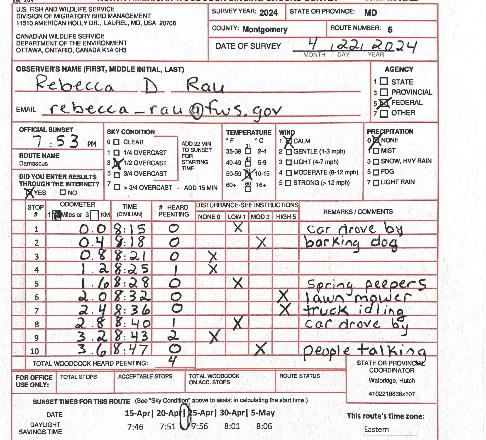 U.S. FISH AND WILDLIFE SERVICE
DIVISION OF MIGRATORY BIRD MANAGEMENT
11510 AMERICAN HOLLY DR., LAUREL, MD, USA 20708
CANADIAN WILDLIFE SERVICE
DEPARTMENT OF THE ENVIRONMENT
OTTAWA, ONTARIO, CANADA K1A 0H3
SURVEY YEAR: 2024 STATE OR PROVINCE: MD
COUNTY: Montgomery ROUTE NUMBER: 6
DATE OF SURVEY 4 22 2024
MONTH DAY YEAR
OBSERVER'S NAME (FIRST, MIDDLE INITIAL, LAST)
Rebecca D Rau
EMAIL rebecca_rau@fws.gov
AGENCY
1 STATE
3 PROVINCIAL
5 X FEDERAL
7 OTHER
OFFICIAL SUNSET
7:53 PM
ROUTE NAME
Damascus
DID YOU ENTER RESULTS
THROUGH THE INTERNET?
X YES NO
SKY CONDITION
0 CLEAR
1 1/4 OVERCAST
2 1/2 OVERCAST
3 X 1/2 OVERCAST
7 > 3/4 OVERCAST - ADD 15 MIN
ADD 22 MIN
TO SUNSET
FOR
STARTING
TIME
TEMPERATURE
°F °C
35-39 2-4
40-49 5-9
50-59 X 10-15
60+ 16+
WIND
X CALM
2 GENTLE (1-3 mph)
3 LIGHT (4-7 mph)
4 MODERATE (8-12 mph)
5 STRONG (> 12 mph)
PRECIPITATION
X NONE
1 MIST
3 SNOW, HVY RAIN
5 FOG
7 LIGHT RAIN
STOP # ODOMETER 1 Miles or 3 KM TIME (CIVILIAN) # HEARD PEENTING DISTURBANCE-SEE INSTRUCTIONS NONE 0 LOW 1 MOD 3 HIGH 5 REMARKS / COMMENTS
1 0.0 8:15 0 X car drove by
2 0.4 8:18 0 X barking dog
3 0.8 8:21 0 X
4 1.2 8:25 1 X
5 1.6 8:28 0 X Spring peepers
6 2.0 8:32 0 X lawn mower
7 2.4 8:36 0 X truck idling
8 2.8 8:40 1 X car drove by
9 3.2 8:43 2 X
10 3.6 8:47 0 X people talking
TOTAL WOODCOCK HEARD PEENTING: 4
STATE OR PROVINCIAL
COORDINATOR
Walbridge, Hutch
FOR OFFICE USE ONLY: TOTAL STOPS ACCEPTABLE STOPS TOTAL WOODCOCK ON ACC. STOPS ROUTE STATUS
SUNSET TIMES FOR THIS ROUTE (See "Sky Condition" above to assist in calculating the start time).
DATE 15-Apr 20-Apr 25-Apr 30-Apr 5-May
DAYLIGHT SAVINGS TIME 7:46 7:51 7:56 8:01 8:06
This route's time zone:
Eastern